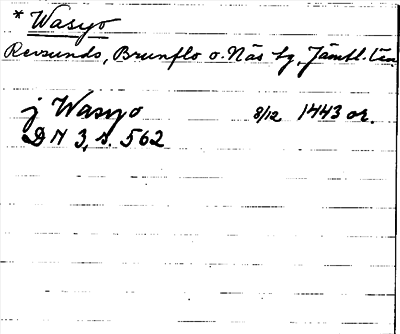 * Wasyo
Revsunds, Brunflo o. Näs tg, Jämtl. län
j Wasyo 8/12 1443 or.
DN 3, s. 562